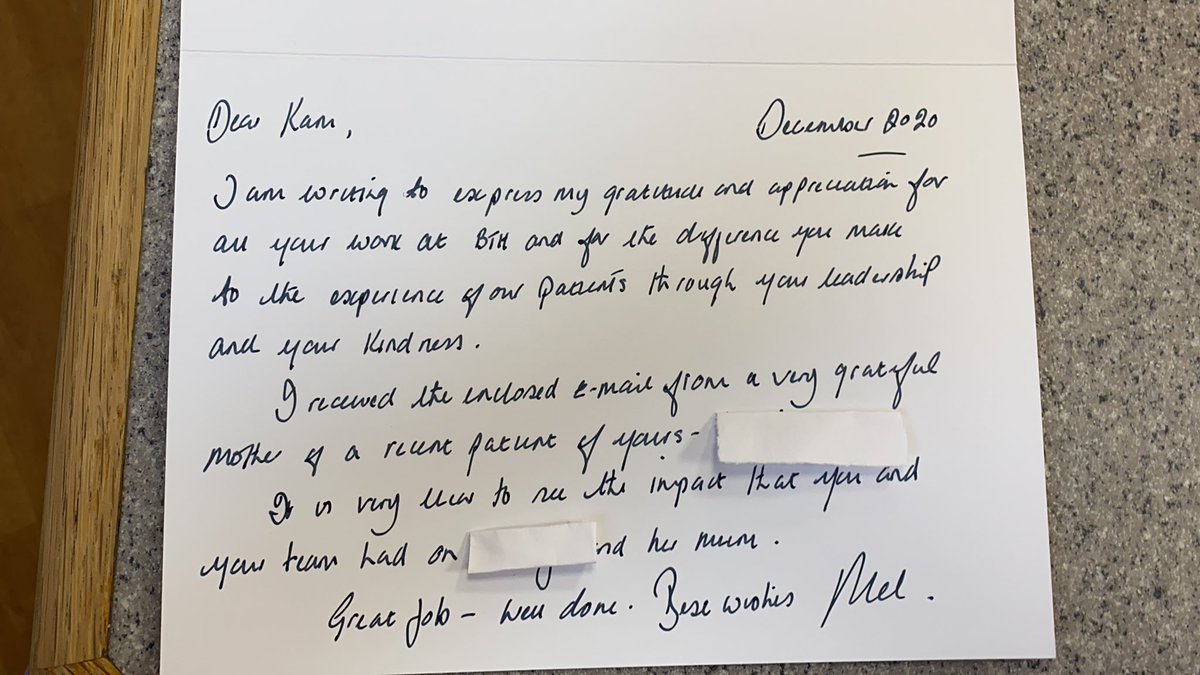 Dear Kam,
December 2020
I am writing to express my gratitude and appreciation for
all your work at BTH and for the difference you make
to the experience of our patients through your leadership
and your kindness.
I received the enclosed e-mail from a very grateful
mother of a recent patient of yours -
It is very clear to see the impact that you and
your team had on and her mum.
Great job - well done. Best wishes Mel.